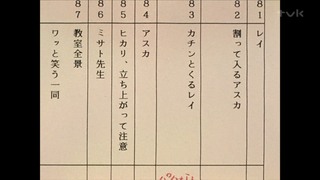 tvk
81
レイ
82
割って入るアスカ
83
カチンとくるレイ
84
アスカ
85
ヒカリ、立ち上がって注意
86
ミサト先生
87
教室全景
ワッと笑う一同